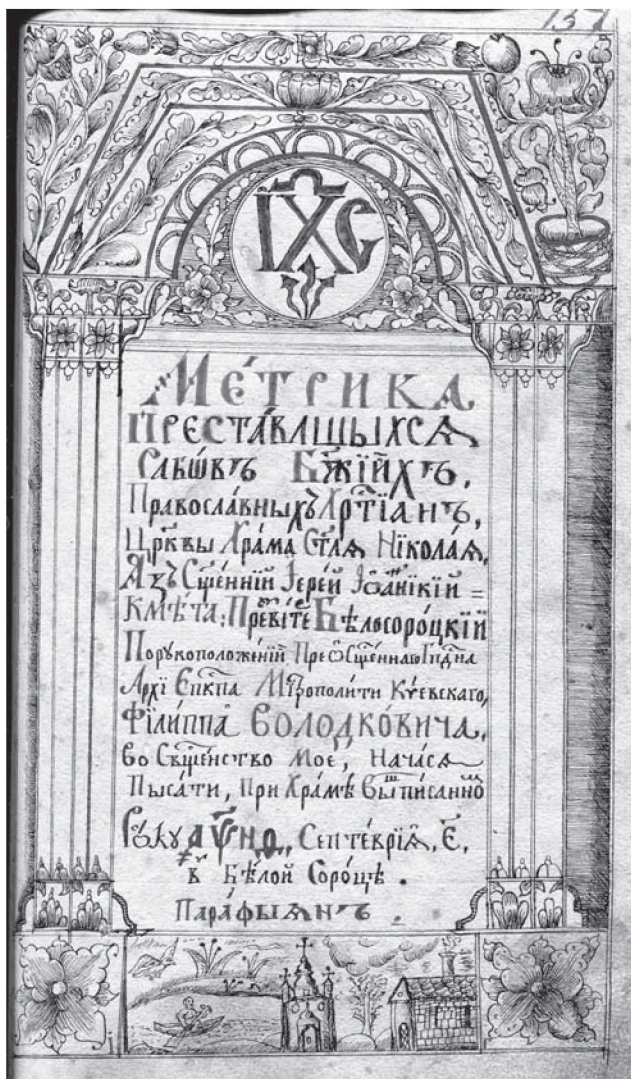 137
ІХС
МЕ́ТРИКА
ПРЕСТА́ВЛШЫХСѦ
РАБѠ́ВЪ БЖ҃ІЙХЪ,
Правосла́вныхЪ Хрⷭ҇тїанъ,
Црк҃вы Хра́ма Ст҃лѧ Нїкола́ѧ,
АзЪ Сщ҃е́ннїй Іере́й Іѡанїкїй =
Кмѣ́та; Превї́те Бѣлосоро́цкїй
Порукоположе́нїй Преѡсщ҃е́ннагѡ Гпⷣна
Архї Епⷭ҇кпа Митрополи́ти Кі́евскагѡ,
Фїли́ппа ВОЛОДКО́ВИЧА,
Во Сщ҃е́нство Мое, Нача́сѧ
Пыса́ти, При Хра́мѣ Вы́шписанно
Рокꙋ ҂аѱн҃д,, Септе́врїѧ, Є҃,
в Бѣ́лой Соро́цѣ .
Пара́фыѧнъ .